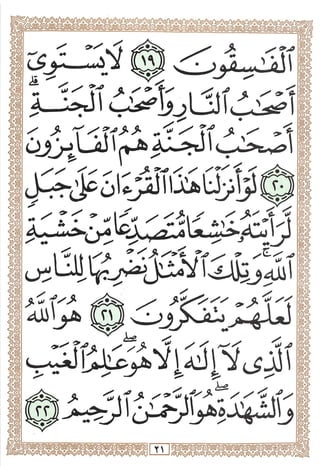 ٱلْفَٰسِقُونَ ١٩ لَا يَسْتَوِىٓ
أَصْحَٰبُ ٱلنَّارِ وَأَصْحَٰبُ ٱلْجَنَّةِ ۚ
أَصْحَٰبُ ٱلْجَنَّةِ هُمُ ٱلْفَآئِزُونَ
٢٠ لَوْ أَنزَلْنَا هَٰذَا ٱلْقُرْءَانَ عَلَىٰ جَبَلٍ
لَّرَأَيْتَهُۥ خَٰشِعًا مُّتَصَدِّعًا مِّنْ خَشْيَةِ
ٱللَّهِ ۚ وَتِلْكَ ٱلْأَمْثَٰلُ نَضْرِبُهَا لِلنَّاسِ
لَعَلَّهُمْ يَتَفَكَّرُونَ ٢١ هُوَ ٱللَّهُ
ٱلَّذِى لَآ إِلَٰهَ إِلَّا هُوَ ۖ عَٰلِمُ ٱلْغَيْبِ
وَٱلشَّهَٰدَةِ ۖ هُوَ ٱلرَّحْمَٰنُ ٱلرَّحِيمُ ٢٢
٢١